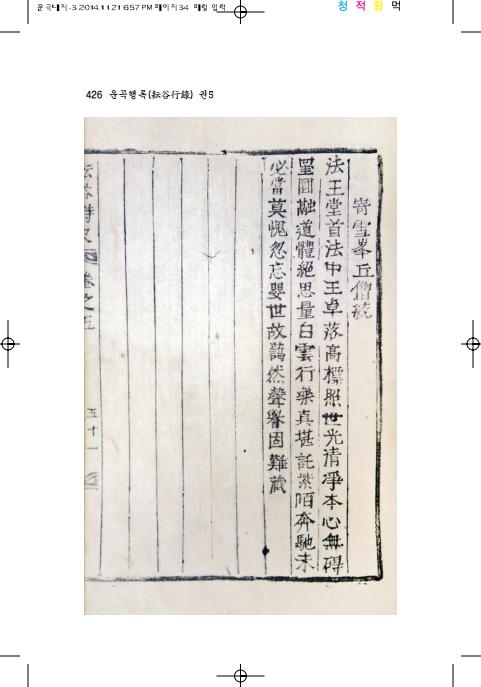 운곡내지-3 2014.11.21 6:57 PM 페이지34 매킬 입력
청 적 황 먹
426 운곡행록(耘谷行錄) 권5
寄雪峯丘僧統
法王堂首法中王卓落高標照世光清淨本心無碍
罣圓融道體絕思量白雲行樂真堪託紫陌奔馳未
必當莫愧忽忘嬰世故藹然聲譽固難藏
耘谷詩史 卷之五
五十一